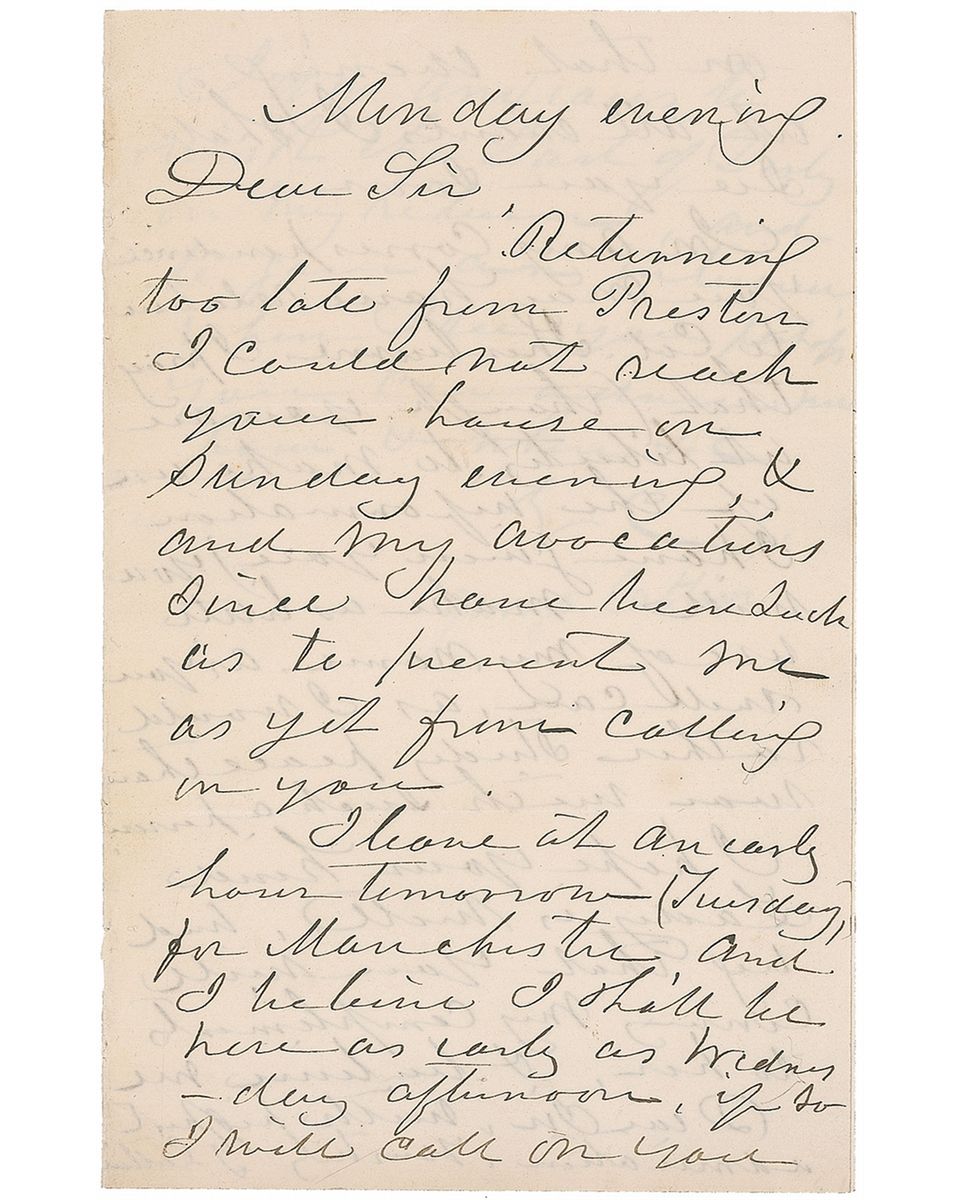 Monday evening.
Dear Sir,
Returning
too late from Preston
I could not reach
your house on
Sunday evening, &
and my avocations
since have been such
as to prevent me
as yet from calling
on you.
I leave at an early
hour tomorrow (Tuesday)
for Manchester and
I believe I shall be
here as early as Wednes
-day afternoon, if so
I will call on you